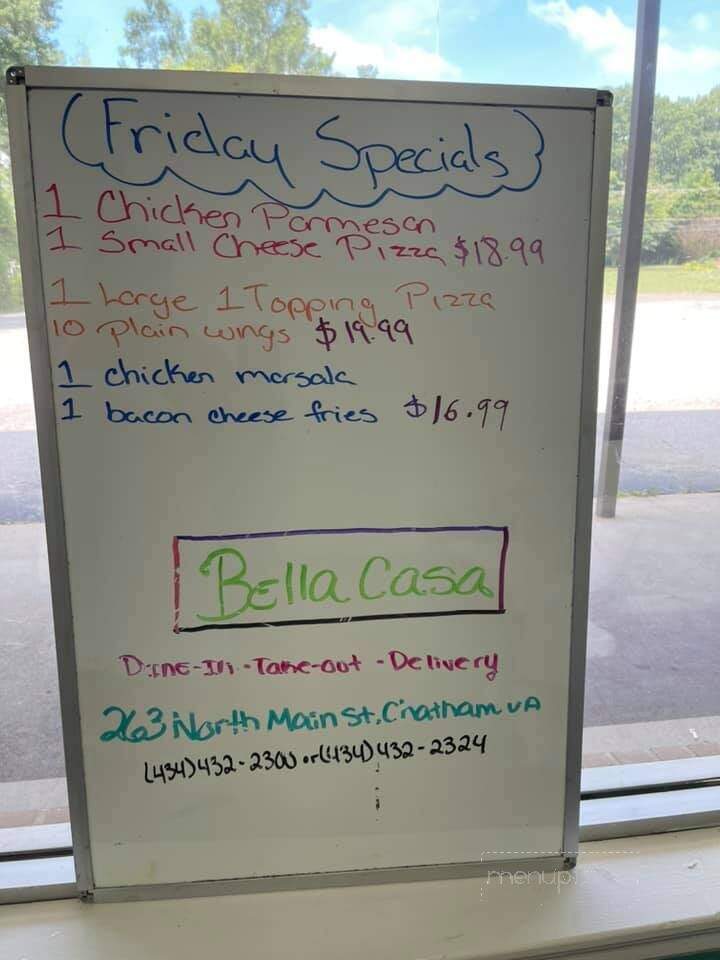 Friday Specials
1 Chicken Parmesan
1 Small Cheese Pizza $18.99
1 Large 1 Topping Pizza
10 Plain wings $19.99
1 chicken marsala
1 bacon cheese fries $16.99
Bella Casa
Dine-In - Take-out - Delivery
263 North Main St. Chatham VA
(434)432-2300 or (434)432-2324